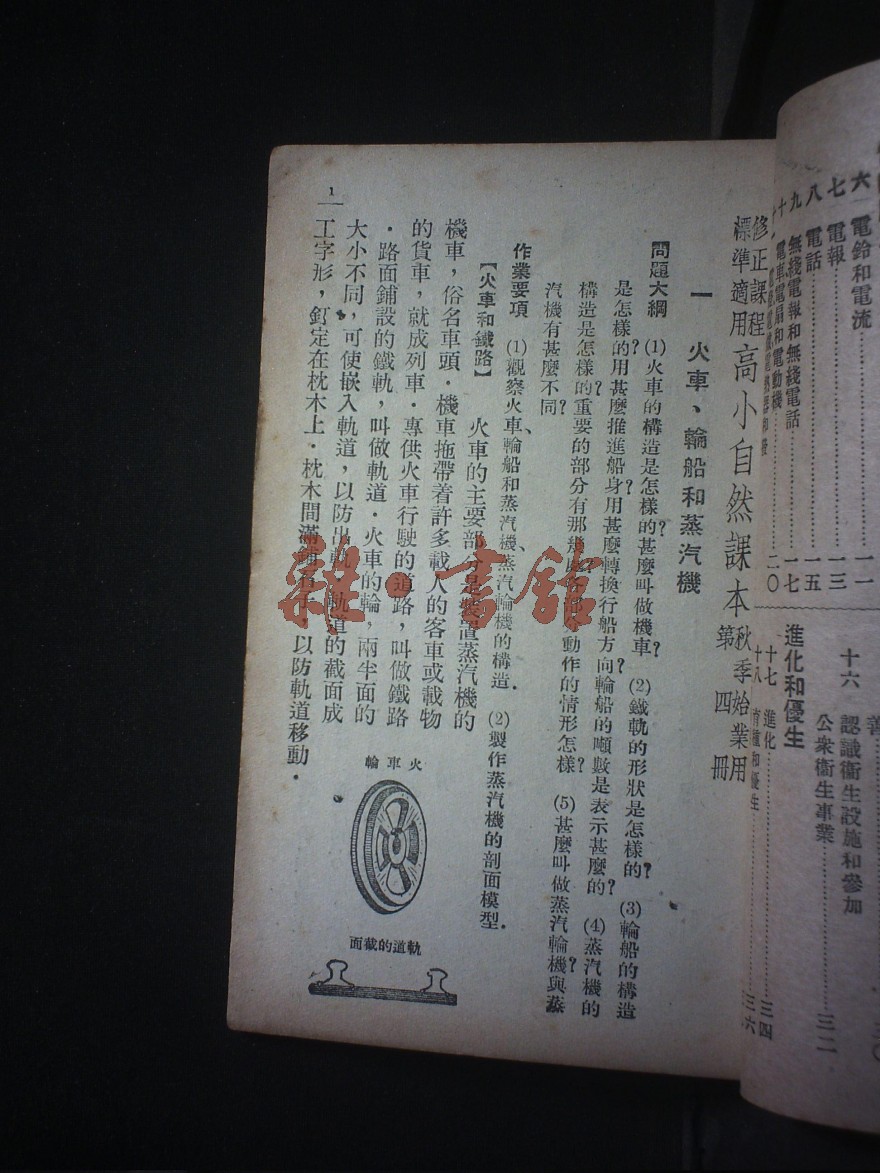 六　電鈴和電流　一一
七　電報　一三
八　電話　一五
九　無綫電報和無綫電話　一七
十　電車電扇和電動機　二〇
善
十六　認識衞生設施和參加
公衆衞生事業　三二
進化和優生
十七　進化　三四
十八　優生　三六
修正課程
標準適用
高小自然課本
秋季始業用
第四冊
一　火車、輪船和蒸汽機
問題大綱　(1)火車的構造是怎樣的?甚麼叫做機車?　(2)鐵軌的形狀是怎樣的?　(3)輪船的構造
是怎樣的?用甚麼推進船身?用甚麼轉換行船方向?輪船的噸數是表示甚麼的?　(4)蒸汽機的
構造是怎樣的?重要的部分有那幾　各部分動作的情形怎樣?　(5)甚麼叫做蒸汽輪機?與蒸
汽機有甚麼不同?
作業要項　(1)觀察火車、輪船和蒸汽機、蒸汽輪機的構造．　(2)製作蒸汽機的剖面模型．
【火車和鐵路】　火車的主要部分是裝置蒸汽機的
機車，俗名車頭．機車拖帶着許多載人的客車或載物
的貨車，就成列車．專供火車行駛的道路，叫做鐵路
．路面鋪設的鐵軌，叫做軌道．火車的輪，兩半面的
大小不同，可使嵌入軌道，以防出軌．軌道的截面成
工字形，釘定在枕木上．枕木間滿鋪石子，以防軌道移動．
火車輪
軌道的截面
1
雜·書館